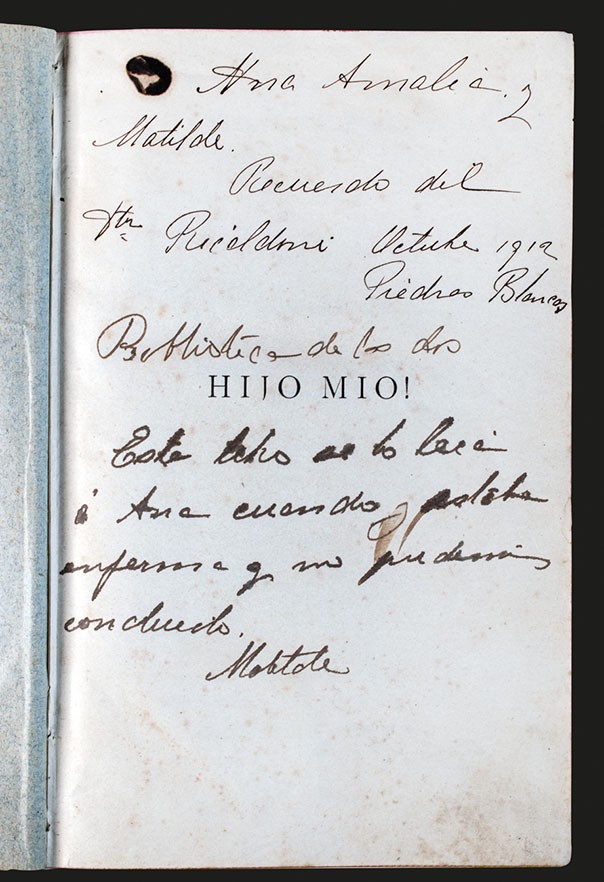 Ana Amalia y
Matilde.
Recuerdo del
Dtr Ricaldoni Octubre 1912
Piedras Blancas
Biblioteca de las dos
HIJO MIO!
Este libro se lo leia
á Ana cuando estaba
enferma y no pudimos
concluirlo.
Matilde